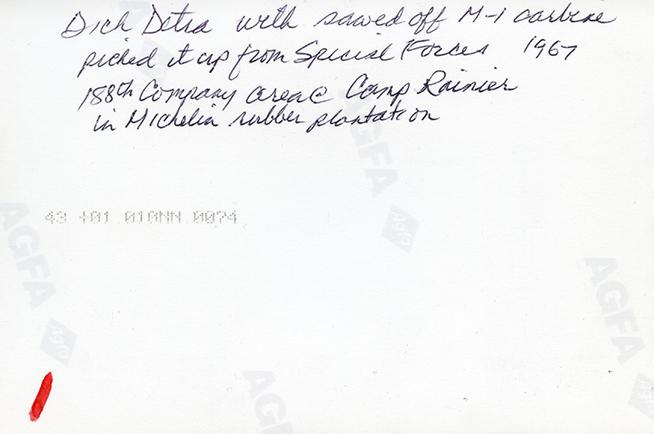 Dick Detra with sawed off M-1 carbine
picked it up from Special Forces 1967
188th Company area @ Camp Rainier
in Michelin rubber plantation
AGFA
AGFA
Agfa
43 +01 010NN 0074
AGFA
Agfa
AGFA
Agfa
AGFA